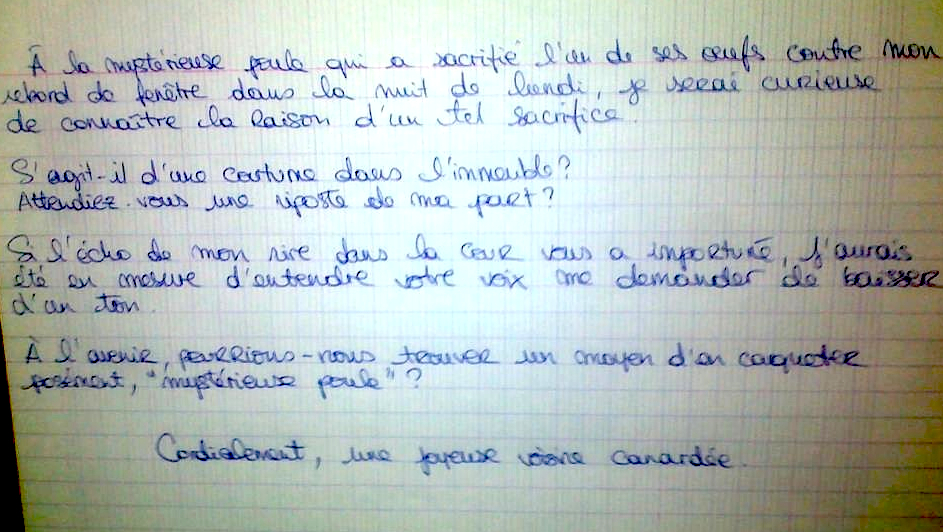 À la mystérieuse poule qui a sacrifié l'un de ses œufs contre mon
rebord de fenêtre dans la nuit de lundi, je serai curieuse
de connaître la raison d'un tel sacrifice.
S'agit-il d'une coutume dans l'immeuble?
Attendiez-vous une riposte de ma part?
Si l'écho de mon rire dans la cour vous a importuné, j'aurais
été en mesure d'entendre votre voix me demander de baisser
d'un ton.
À l'avenir, pourrions-nous trouver un moyen d'en caqueter
posément, "mystérieuse poule"?
Cordialement, une joyeuse voisine canardée.